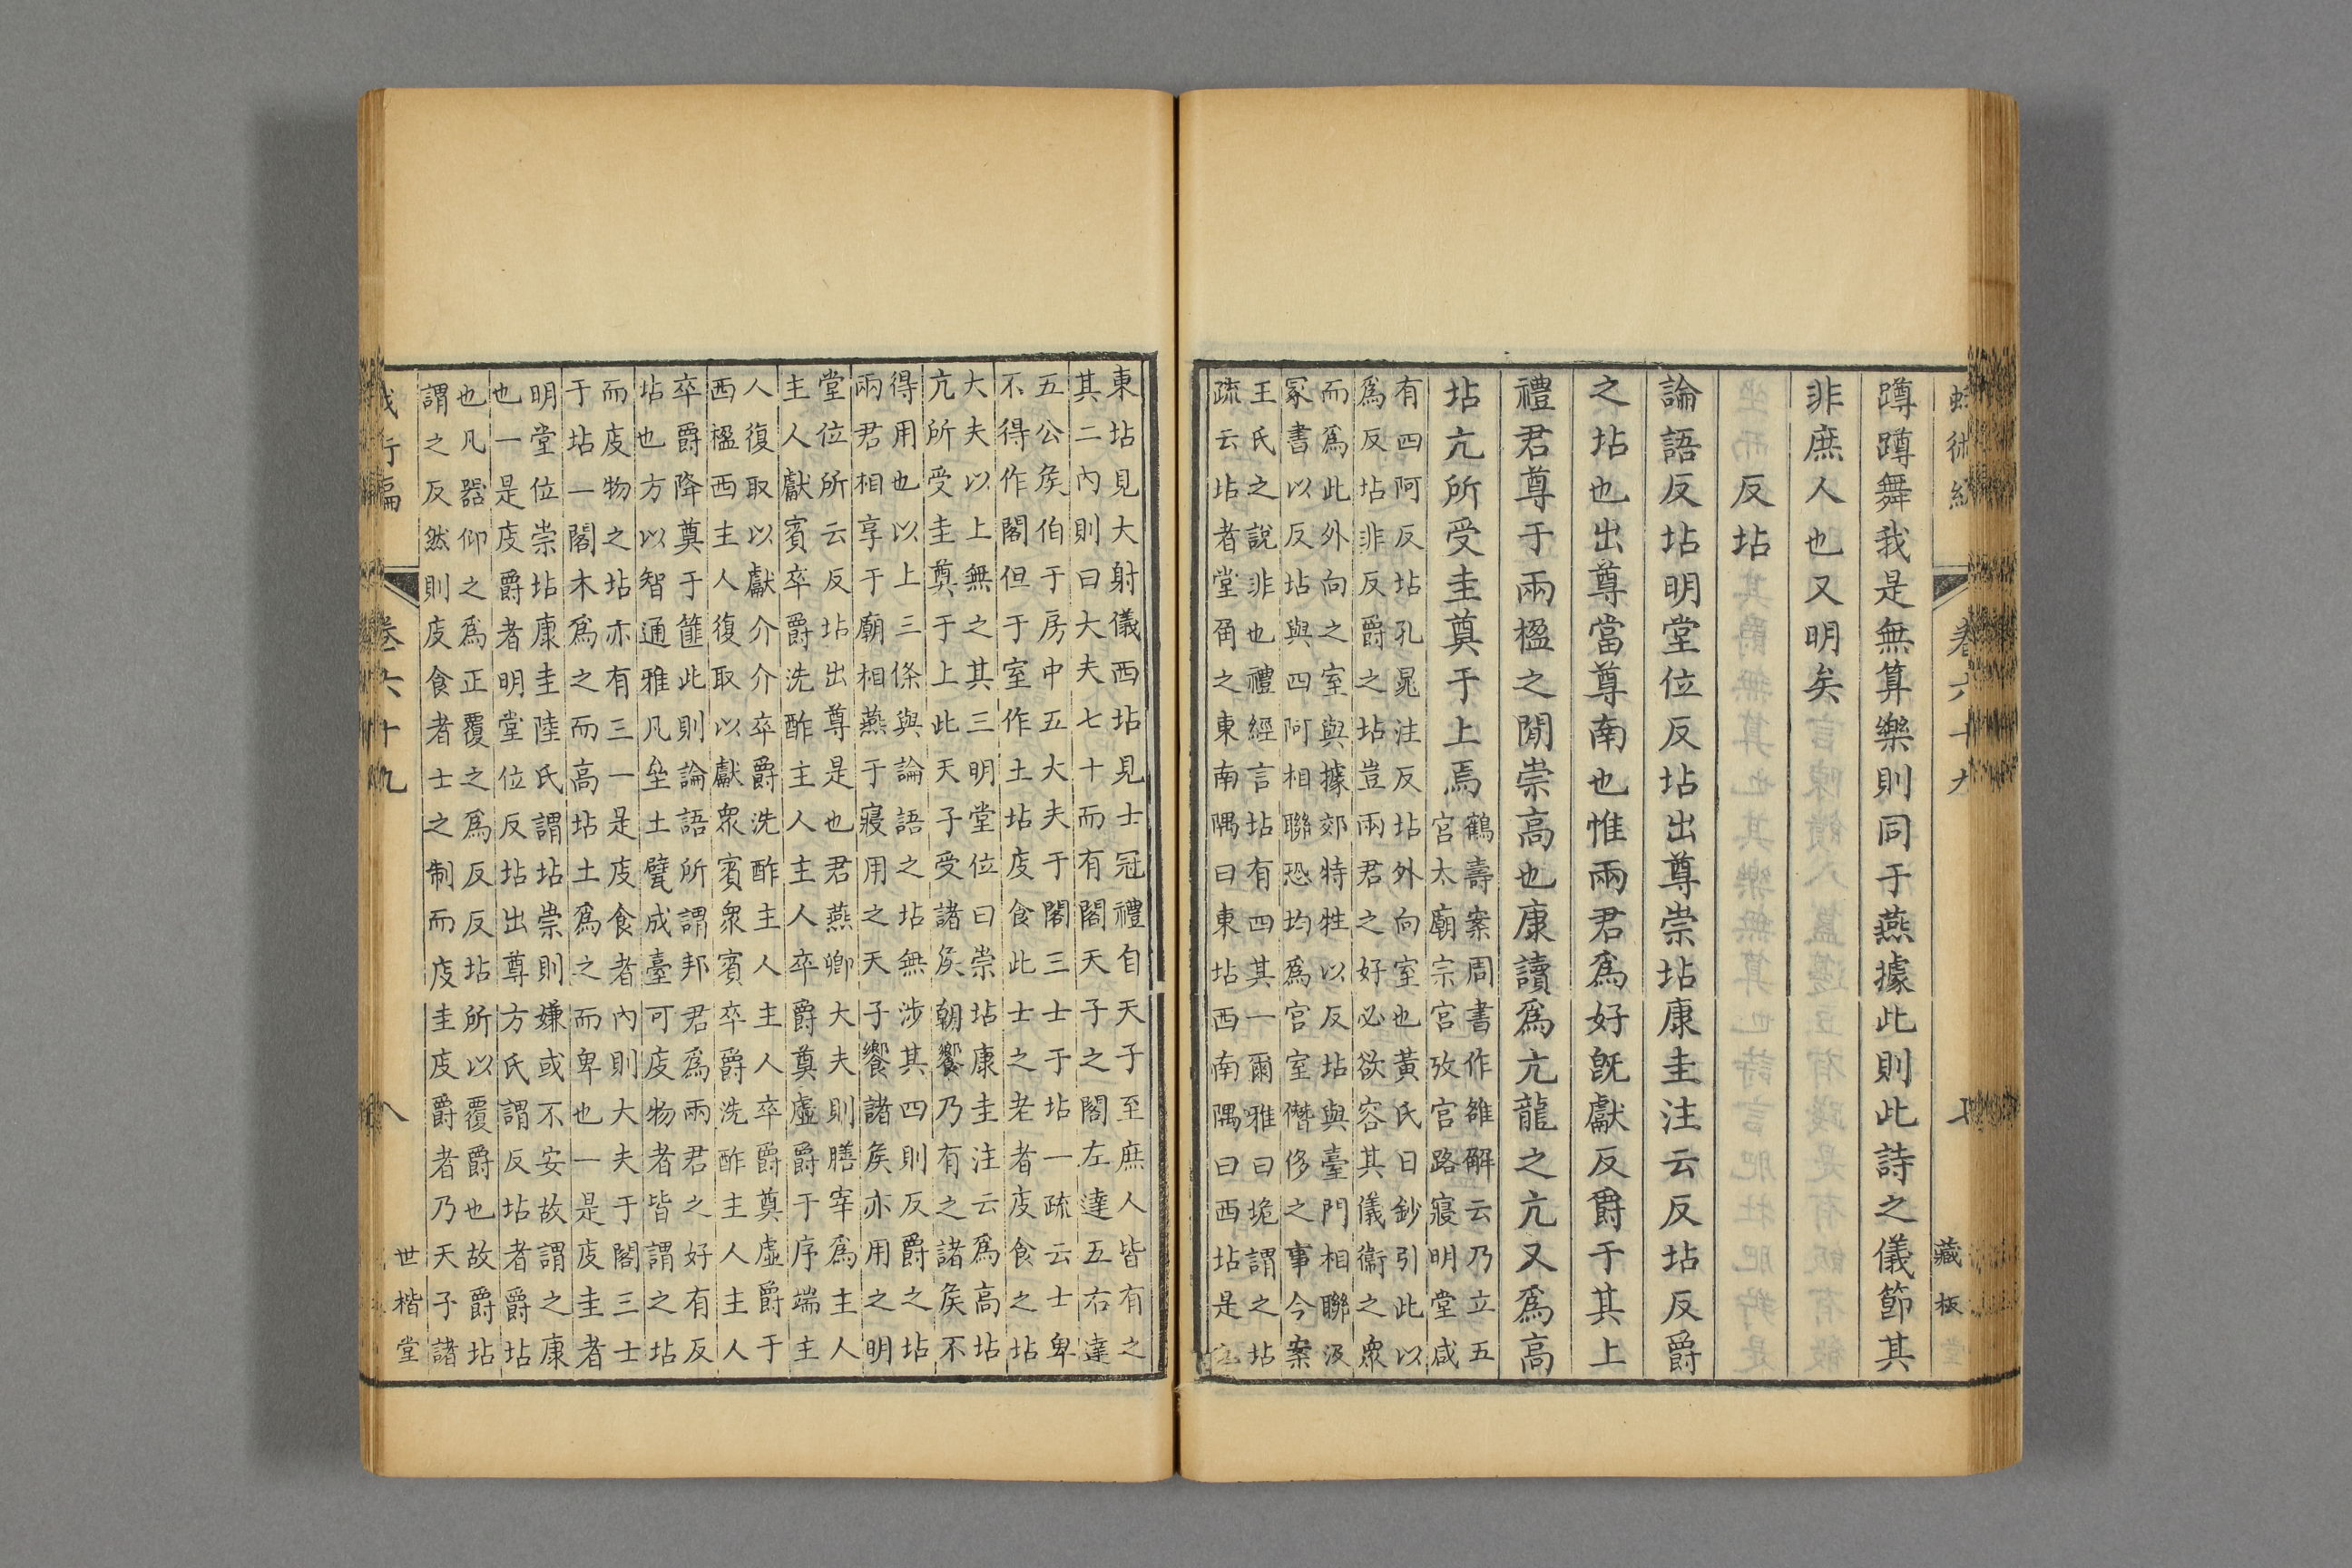 蹲蹲舞我是無算樂則同于燕據此則此詩之儀節其
非庶人也又明矣
反坫
論語反坫明堂位反坫出尊崇坫康圭注云反坫反爵
之坫也出尊當尊南也惟兩君爲好旣獻反爵于其上
禮君尊于兩楹之閒崇高也康讀爲亢龍之亢又爲高
坫亢所受圭奠于上焉
鶴壽案周書作雒解云乃立五
宮太廟宗宮攷宮路寢明堂咸
有四阿反坫孔晁注反坫外向室也黃氏日鈔引此以
爲反坫非反爵之坫豈兩君之好必欲容其儀衞之衆
而爲此外向之室與據郊特牲以反坫與臺門相聯汲
冢書以反坫與四阿相聯恐均爲官室僭侈之事今案
王氏之說非也禮經言坫有四其一爾雅曰垝謂之坫
疏云坫者堂角之東南隅曰東坫西南隅曰西坫是也
東坫見大射儀西坫見士冠禮自天子至庶人皆有之
其二內則曰大夫七十而有閣天子之閣左達五右達
五公矦伯于房中五大夫于閣三士于坫一疏云士卑
不得作閣但于室作土坫庋食此士之老者庋食之坫
大夫以上無之其三明堂位曰崇坫康圭注云爲高坫
亢所受圭奠于上此天子受諸矦朝饗乃有之諸矦不
得用也以上三條與論語之坫無涉其四則反爵之坫
兩君相享于廟相燕于寢用之天子饗諸矦亦用之明
堂位所云反坫出尊是也君燕卿大夫則膳宰爲主人
主人獻賓卒爵洗酢主人主人卒爵奠虛爵于序端主
人復取以獻介介卒爵洗酢主人主人卒爵奠虛爵于
西楹西主人復取以獻衆賓衆賓卒爵洗酢主人主人
卒爵降奠于篚此則論語所謂邦君爲兩君之好有反
坫也方以智通雅凡垒土甓成臺可庋物者皆謂之坫
而庋物之坫亦有三一是庋食者內則大夫于閣三士
于坫一閣木爲之而高坫土爲之而卑也一是庋圭者
明堂位崇坫康圭陸氏謂坫崇則嫌或不安故謂之康
也一是庋爵者明堂位反坫出尊方氏謂反坫者爵坫
也凡器仰之爲正覆之爲反反坫所以覆爵也故爵坫
謂之反然則庋食者士之制而庋圭庋爵者乃天子諸
卷六十九
八
世楷堂
藏板